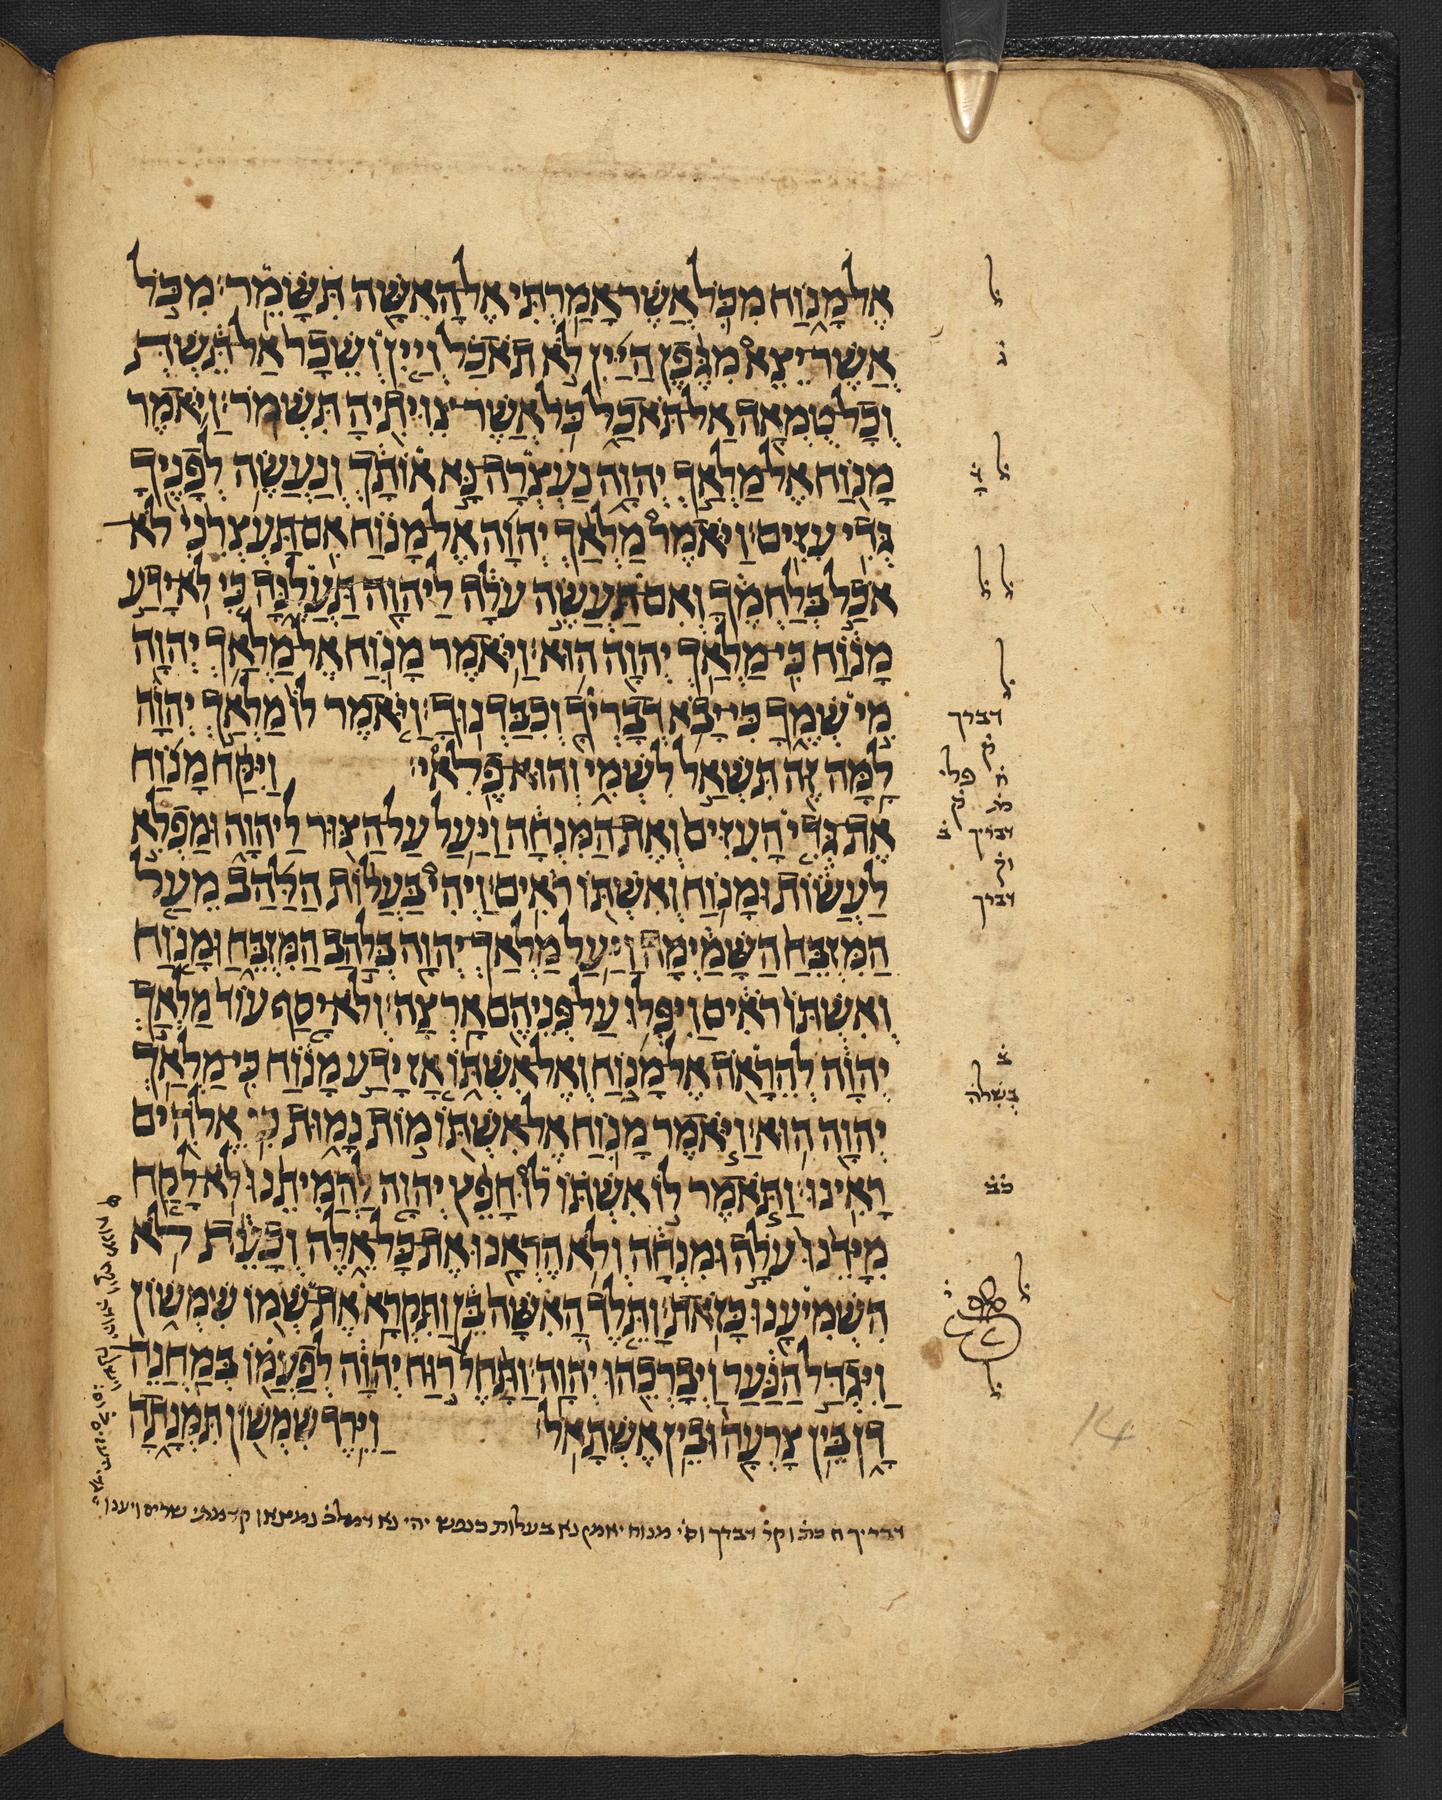 אֶל מָנֽוֹחַ מִכֹּ֛ל אֲשֶׁר אָמַ֥רְתִּי אֶל הָאִשָּׁ֖ה תִּשָּׁמֵֽר׃ מִכֹּ֣ל
אֲשֶׁר יֵצֵא֩ מִגֶּ֨פֶן הַיַּ֜יִן לֹ֣א תֹאכַ֗ל וְיַ֤יִן וְשֵׁכָר֙ אַל תֵּ֔שְׁתְּ
וְכָל טֻמְאָ֖ה אַל תֹּאכַ֑ל כֹּ֥ל אֲשֶׁר צִוִּיתִ֖יהָ תִּשְׁמֹֽר׃ וַיֹּ֥אמֶר
מָנ֖וֹחַ אֶל מַלְאַ֣ךְ יְהוָ֑ה נַעְצְרָה נָּ֣א אוֹתָ֔ךְ וְנַעֲשֶׂ֥ה לְפָנֶ֖יךָ
גְּדִ֥י עִזִּֽים׃ וַיֹּאמֶר֩ מַלְאַ֨ךְ יְהוָ֜ה אֶל מָנ֗וֹחַ אִם תַּעְצְרֵ֙נִי֙ לֹא
אֹכַ֣ל בְּלַחְמֶ֔ךָ וְאִם תַּעֲשֶׂ֣ה עֹלָ֔ה לַיהוָ֖ה תַּעֲלֶ֑נָּה כִּ֚י לֹא יָדַ֣ע
מָנ֔וֹחַ כִּֽי מַלְאַ֥ךְ יְהוָ֖ה הֽוּא׃ וַיֹּ֧אמֶר מָנ֛וֹחַ אֶל מַלְאַ֥ךְ יְהוָ֖ה
מִ֣י שְׁמֶ֑ךָ כִּֽי יָבֹ֥א דְבָרְיךָ֖ וְכִבַּדְנֽוּךָ׃ וַיֹּ֤אמֶר לוֹ֙ מַלְאַ֣ךְ יְהוָ֔ה
לָ֥מָּה זֶּ֖ה תִּשְׁאַ֣ל לִשְׁמִ֑י וְהוּא פֶֽלִאי׃ וַיִּקַּ֨ח מָנ֜וֹחַ
אֶת גְּדִ֤י הָעִזִּים֙ וְאֶת הַמִּנְחָ֔ה וַיַּ֥עַל עַל הַצּ֖וּר לַֽיהוָ֑ה וּמַפְלִ֣א
לַעֲשׂ֔וֹת וּמָנ֥וֹחַ וְאִשְׁתּ֖וֹ רֹאִֽים׃ וַיְהִי֩ בַעֲל֨וֹת הַלַּ֜הַב מֵעַ֤ל
הַמִּזְבֵּ֙חַ֙ הַשָּׁמַ֔יְמָה וַיַּ֥עַל מַלְאַךְ יְהוָ֖ה בְּלַ֣הַב הַמִּזְבֵּ֑חַ וּמָנ֤וֹחַ
וְאִשְׁתּוֹ֙ רֹאִ֔ים וַיִּפְּל֥וּ עַל פְּנֵיהֶ֖ם אָֽרְצָה׃ וְלֹא יָ֤סַף עוֹד֙ מַלְאַ֣ךְ
יְהוָ֔ה לְהֵרָאֹ֖ה אֶל מָנ֣וֹחַ וְאֶל אִשְׁתּ֑וֹ אָ֚ז יָדַ֣ע מָנ֔וֹחַ כִּֽי מַלְאַ֥ךְ
יְהוָ֖ה הֽוּא׃ וַיֹּ֧אמֶר מָנ֛וֹחַ אֶל אִשְׁתּ֖וֹ מ֣וֹת נָמ֑וּת כִּ֥י אֱלֹהִ֖ים
רָאִֽינוּ׃ וַתֹּ֧אמֶר ל֣וֹ אִשְׁתּ֗וֹ לוּ֩ חָפֵ֨ץ יְהוָ֤ה לַהֲמִיתֵ֙נוּ֙ לֹֽא לָקַ֤ח
מִיָּדֵ֙נוּ֙ עֹלָ֣ה וּמִנְחָ֔ה וְלֹ֥א הֶרְאָ֖נוּ אֶת כָּל אֵ֑לֶּה וְכָעֵ֕ת לֹ֥א
הִשְׁמִיעָ֖נוּ כָּזֹֽאת׃ וַתֵּ֤לֶד הָֽאִשָּׁה֙ בֵּ֔ן וַתִּקְרָ֥א אֶת שְׁמ֖וֹ שִׁמְשׁ֑וֹן
וַיִּגְדַּ֣ל הַנַּ֔עַר וַֽיְבָרְכֵ֖הוּ יְהוָֽה׃ וַתָּ֙חֶל֙ ר֣וּחַ יְהוָ֔ה לְפַעֲמ֖וֹ בְּמַחֲנֵה
דָ֑ן בֵּ֥ין צָרְעָ֖ה וּבֵ֥ין אֶשְׁתָּאֹֽל׃ וַיֵּ֥רֶד שִׁמְשׁ֖וֹן תִּמְנָ֑תָה
ל
ג
ל
ל ל
ל
דברך
ק
פלי
דבריך
דברך
ב
בשלח
כב
ל
14